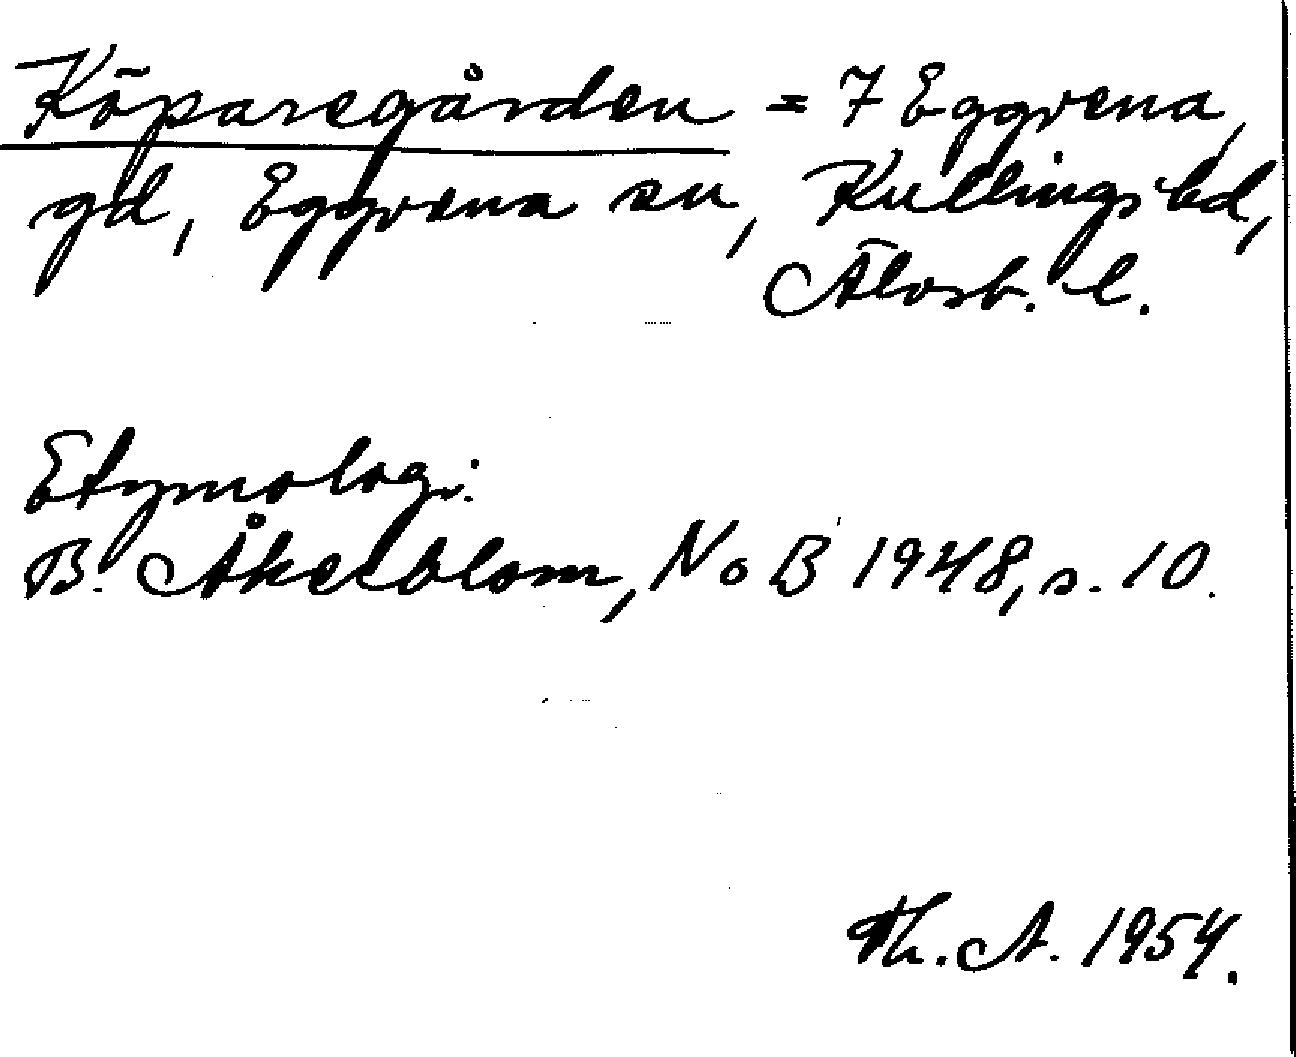 Köparegården = 7 Eggvena,
gd, Eggvena sn, Kullings hd,
Älvsb. l.
Etymologi:
B. Åkerblom, NoB 1948, s. 10.
Th. A. 1954.